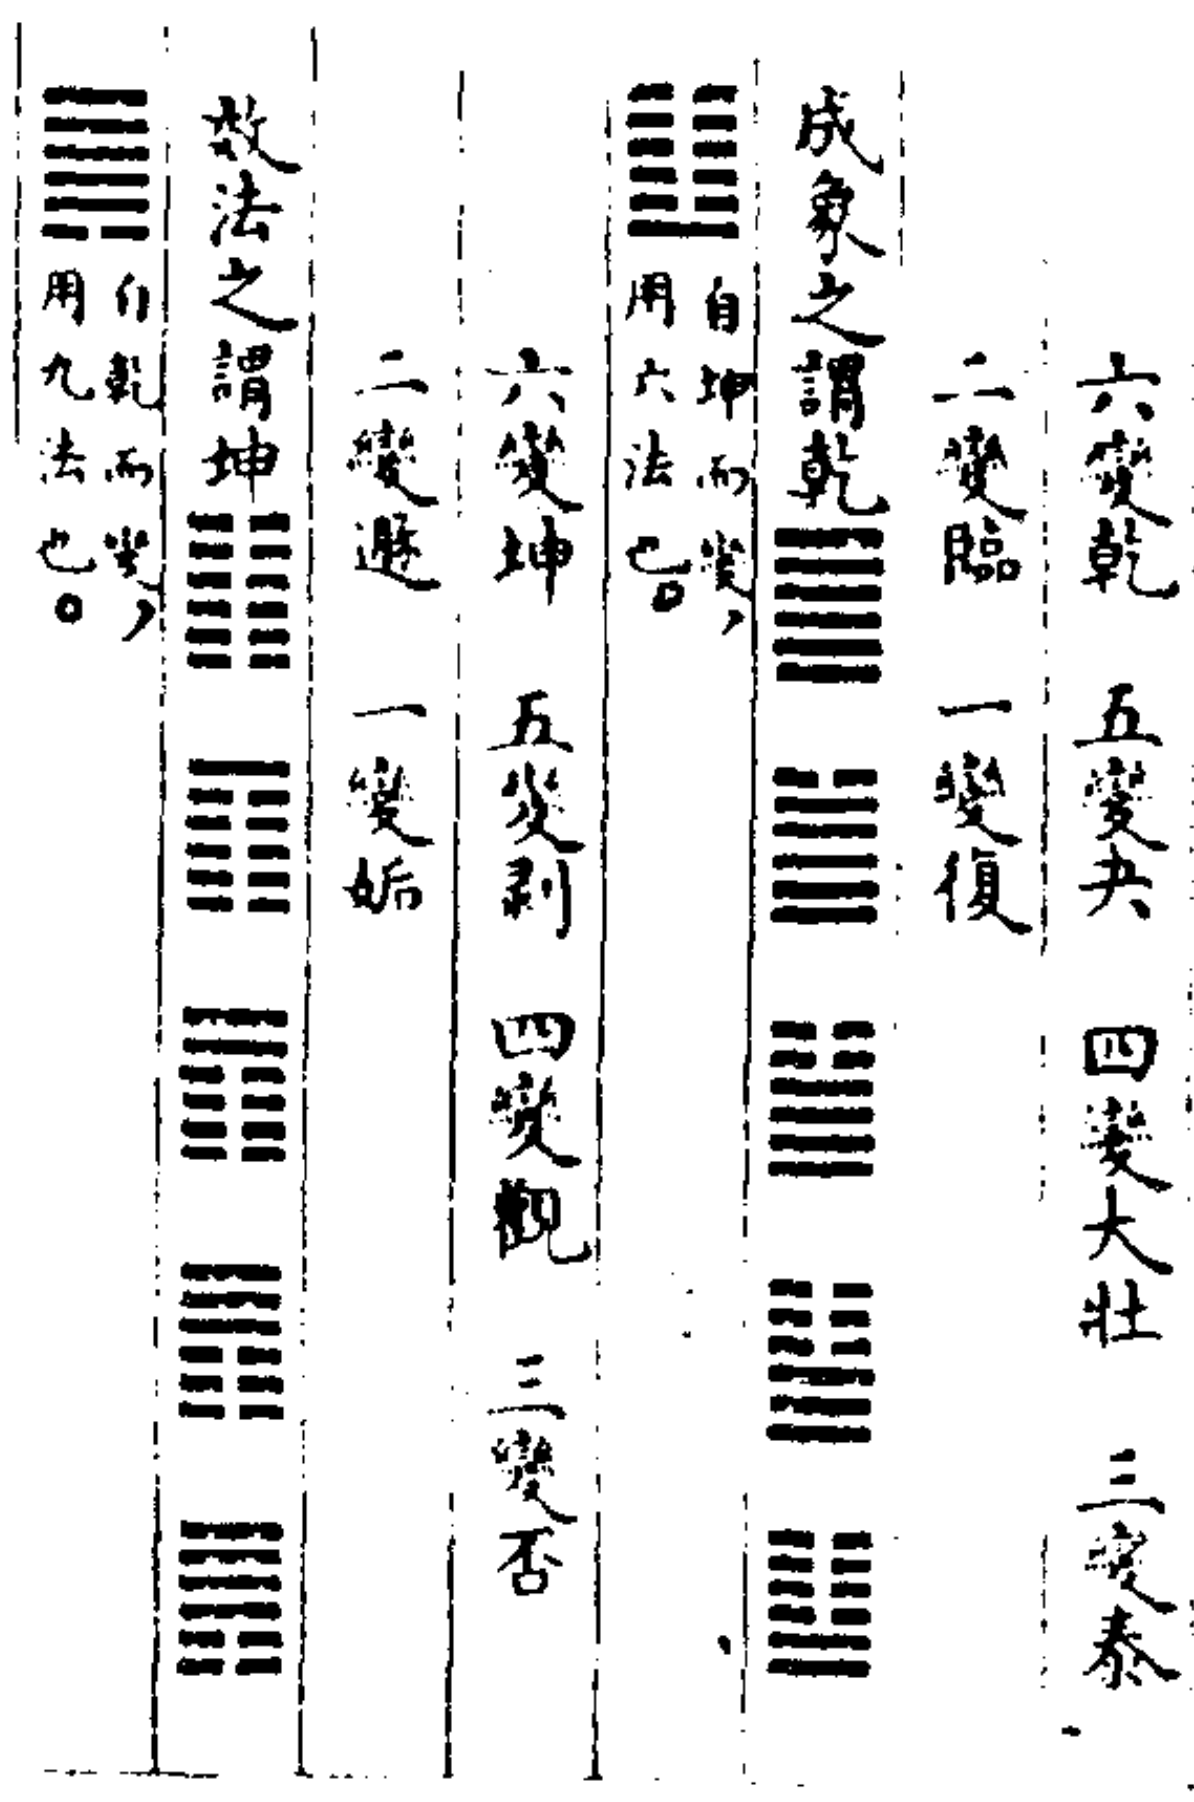 六變乾　五變夬　四變大壯　三變泰
二變臨　一變復
成象之謂乾䷀䷪䷡䷊䷒
䷗自坤而變，
用六法也。
六變坤　五變剥　四變觀　三變否
二變遯　一變姤
效法之謂坤䷁䷖䷓䷋䷠
䷫自乾而變，
用九法也。